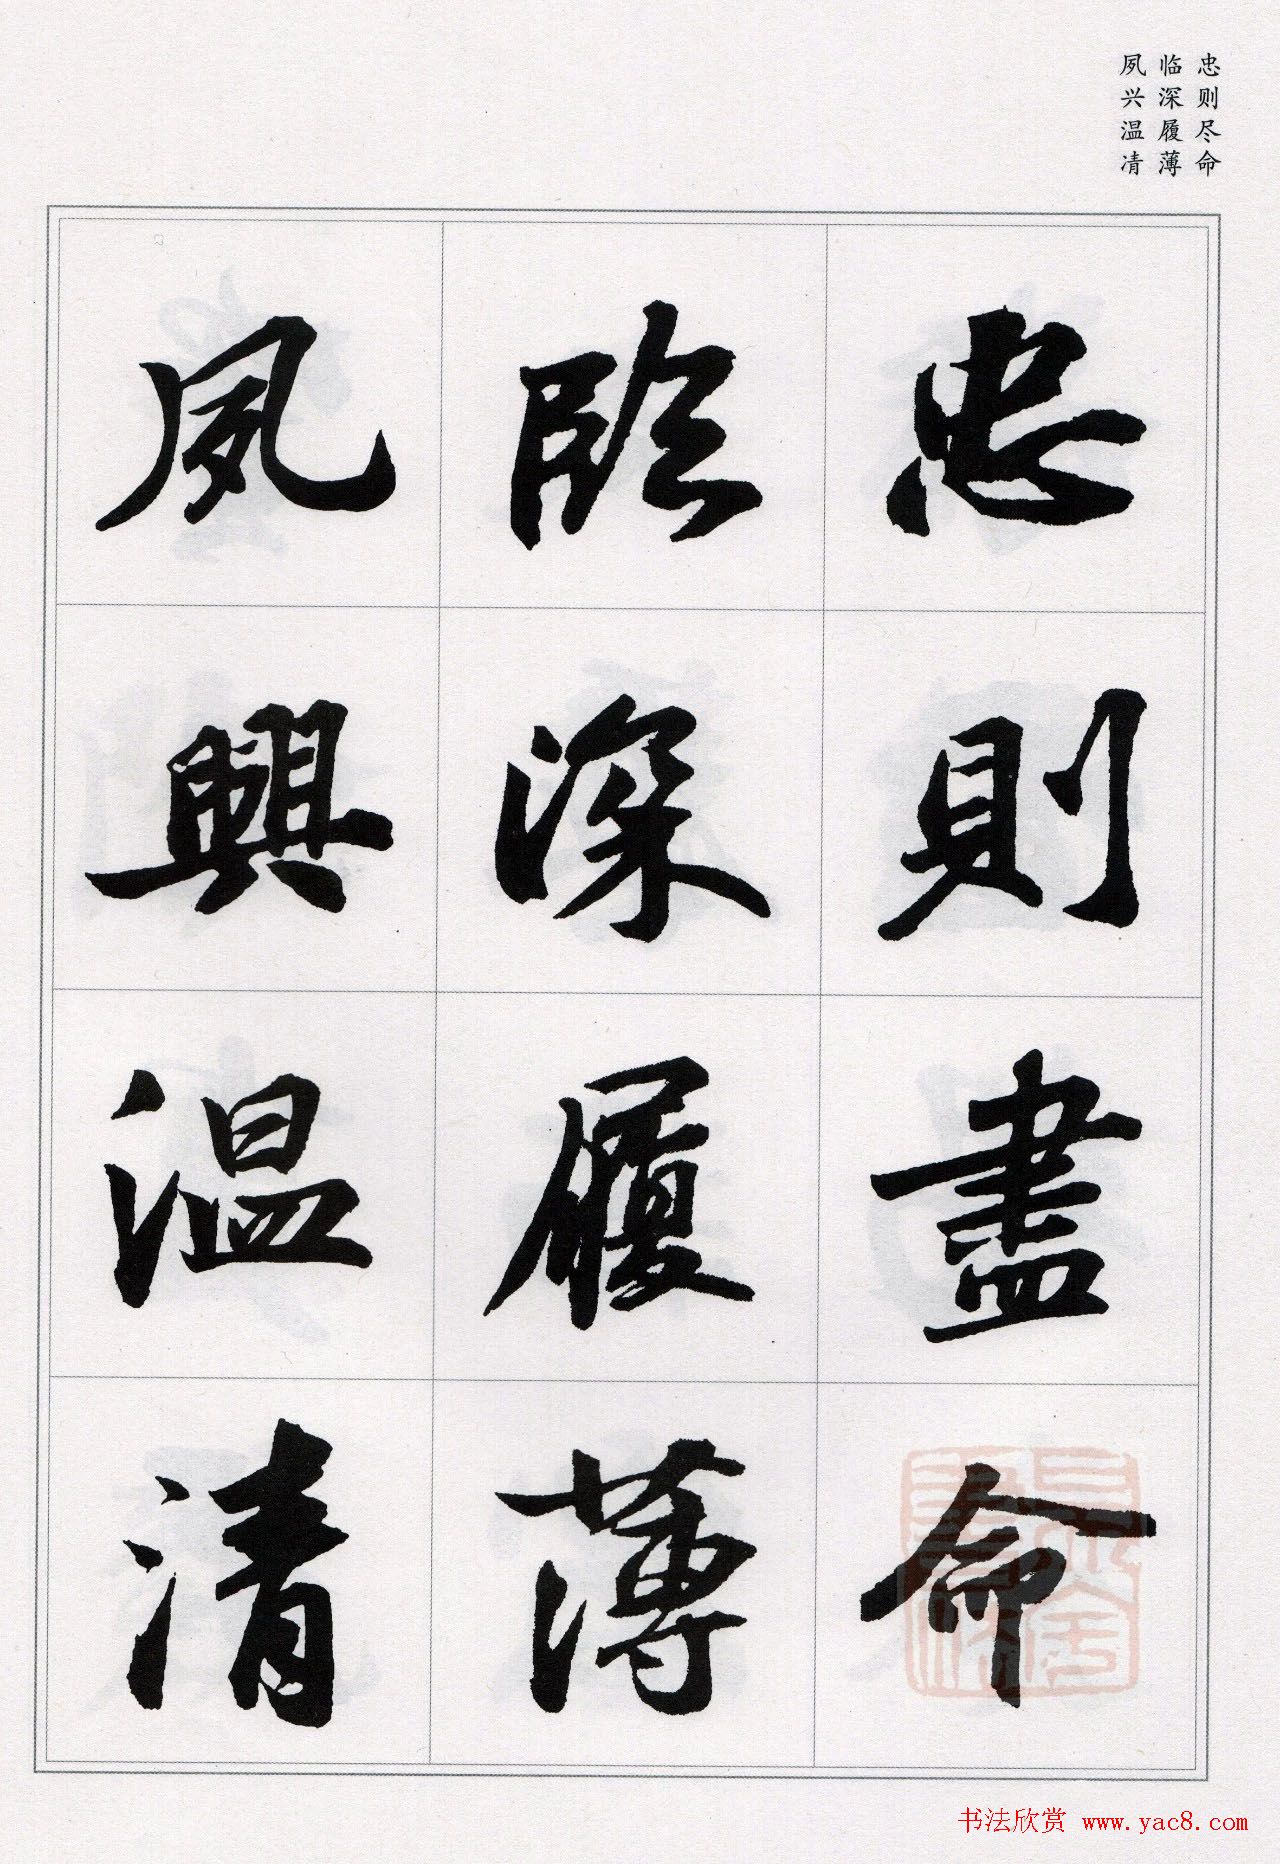 忠则尽命
临深履薄
夙兴温凊
忠則盡命
臨深履薄
夙興温清
书法欣赏 www.yac8.com